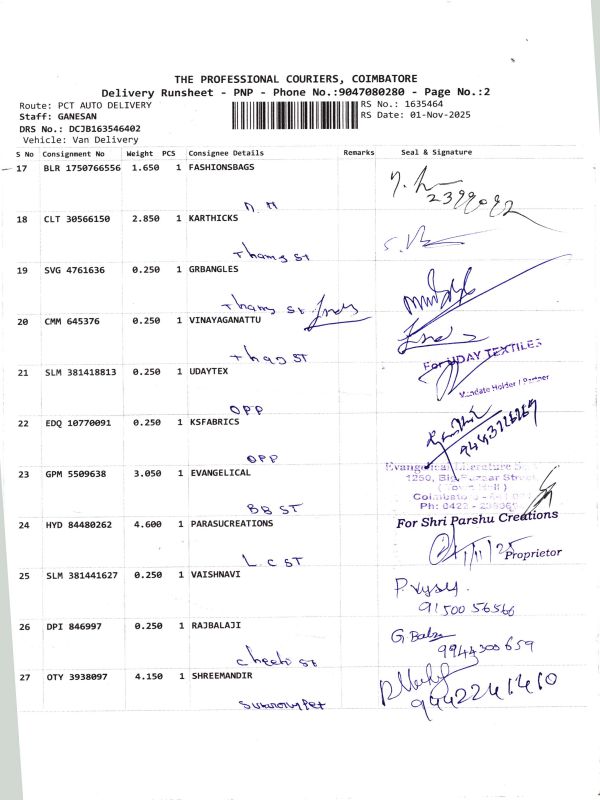 THE PROFESSIONAL COURIERS, COIMBATORE
Delivery Runsheet - PNP - Phone No.:9047080280 - Page No.:2
Route: PCT AUTO DELIVERY RS No.: 1635464
Staff: GANESAN RS Date: 01-Nov-2025
DRS No.: DCJB163546402
Vehicle: Van Delivery
S No Consignment No Weight PCS Consignee Details Remarks Seal & Signature
17 BLR 1750766556 1.650 1 FASHIONSBAGS
N.M
18 CLT 30566150 2.850 1 KARTHICKS
Thams St
19 SVG 4761636 0.250 1 GRBANGLES
Thams St
20 CMM 645376 0.250 1 VINAYAGANATTU
St
For UDAY TEXTILES
21 SLM 381418813 0.250 1 UDAYTEX
Mandate Holder / Partner
OPP
22 EDQ 10770091 0.250 1 KSFABRICS
9443726269
OPP
Evangelical Literature
23 GPM 5509638 3.050 1 EVANGELICAL
1250, Big Bazaar Street
(Town Hall)
Coimbatore
Ph: 0422 -
BB ST
24 HYD 84480262 4.600 1 PARASUCREATIONS
For Shri Parshu Creations
1/11/25
Proprietor
L.C ST
25 SLM 381441627 0.250 1 VAISHNAVI
91500 56566
26 DPI 846997 0.250 1 RAJBALAJI
G. Balan
9944300659
St
27 OTY 3938097 4.150 1 SHREEMANDIR
9442241410